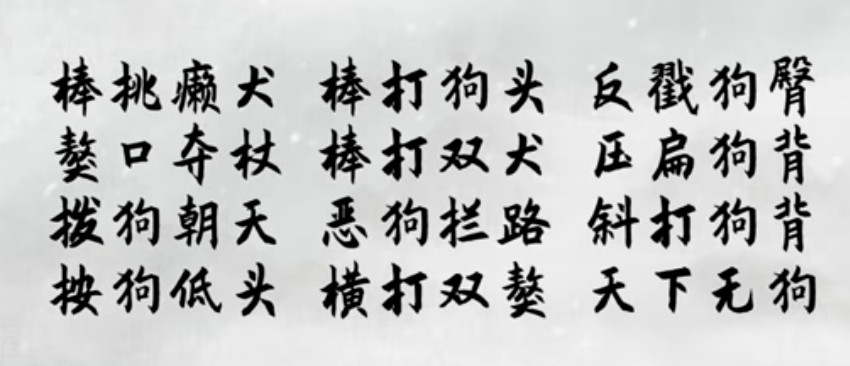 棒挑癞犬 棒打狗头 反戳狗臀
獒口夺杖 棒打双犬 压扁狗背
拨狗朝天 恶狗拦路 斜打狗背
按狗低头 横打双獒 天下无狗